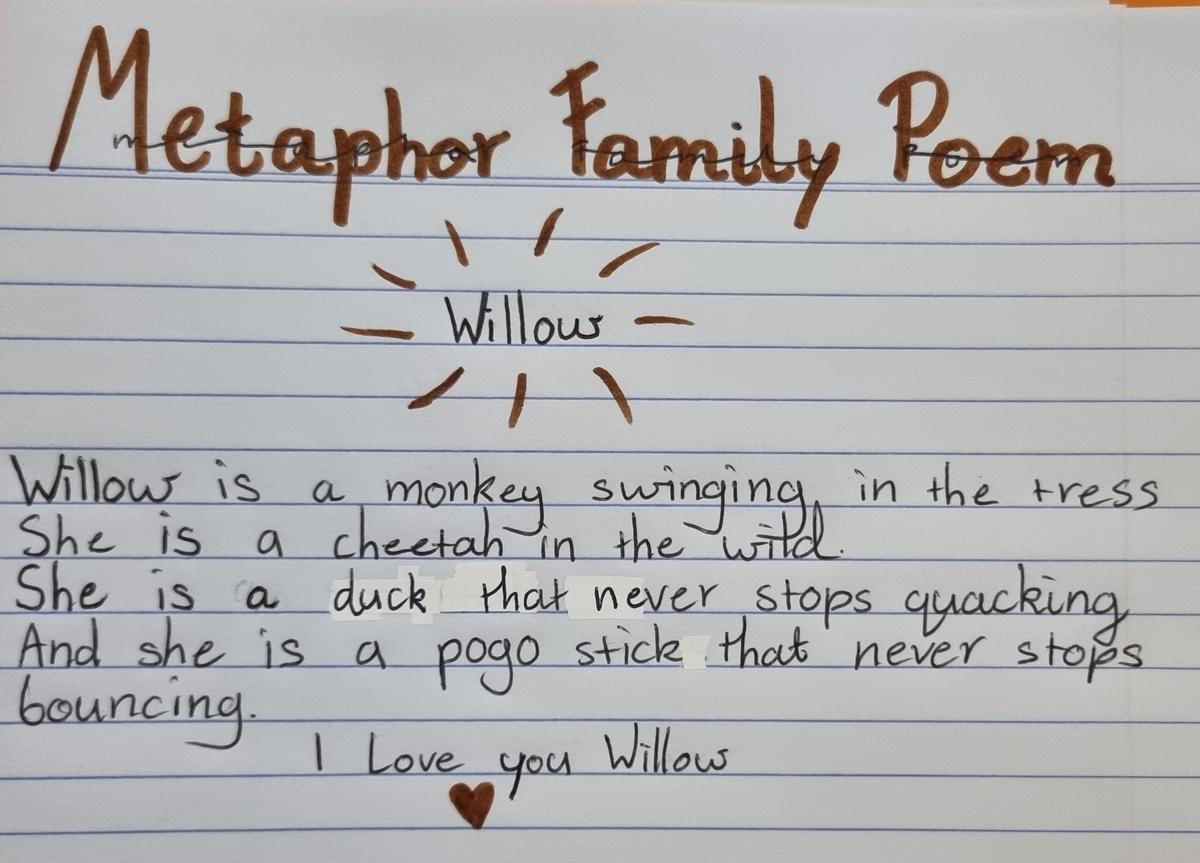 Metaphor Family Poem
Willow
Willow is a monkey swinging in the tress
She is a cheetah in the wild.
She is a duck that never stops quacking
And she is a pogo stick that never stops
bouncing.
I Love you Willow